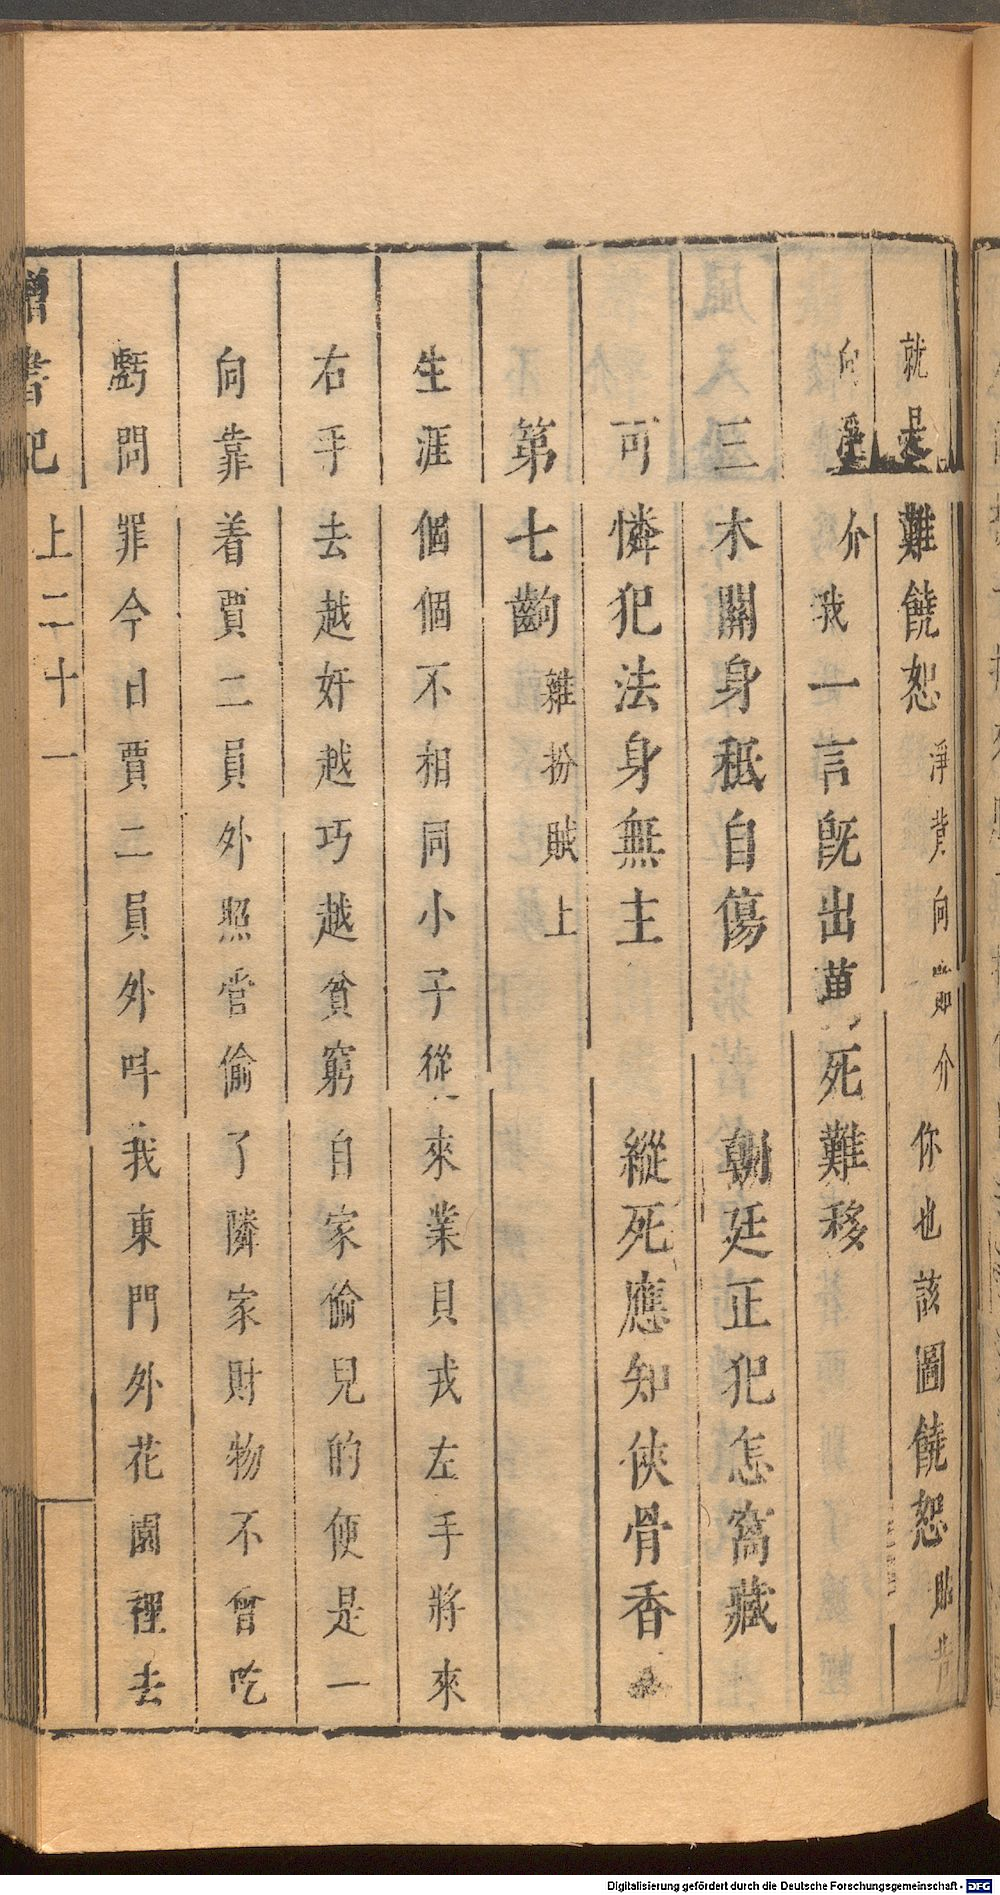 就是難饒恕淨背向介你也該圖饒恕貼
向淨介我一言既出萬死難移
三木關身秪自傷 朝廷正犯怎窩藏
可憐犯法身無主 縱死應知俠骨香
第七齣雜扮賊上
生涯個個不相同小子從來業貝戎左手將來
右手去越奸越巧越貧窮自家偷兒的便是一
向靠着賈二員外照管偷了隣家財物不曾吃
虧問罪今日賈二員外呌我東門外花園裡去
書記 上二十一
Digitalisierung gefördert durch die Deutsche Forschungsgemeinschaft - DFG